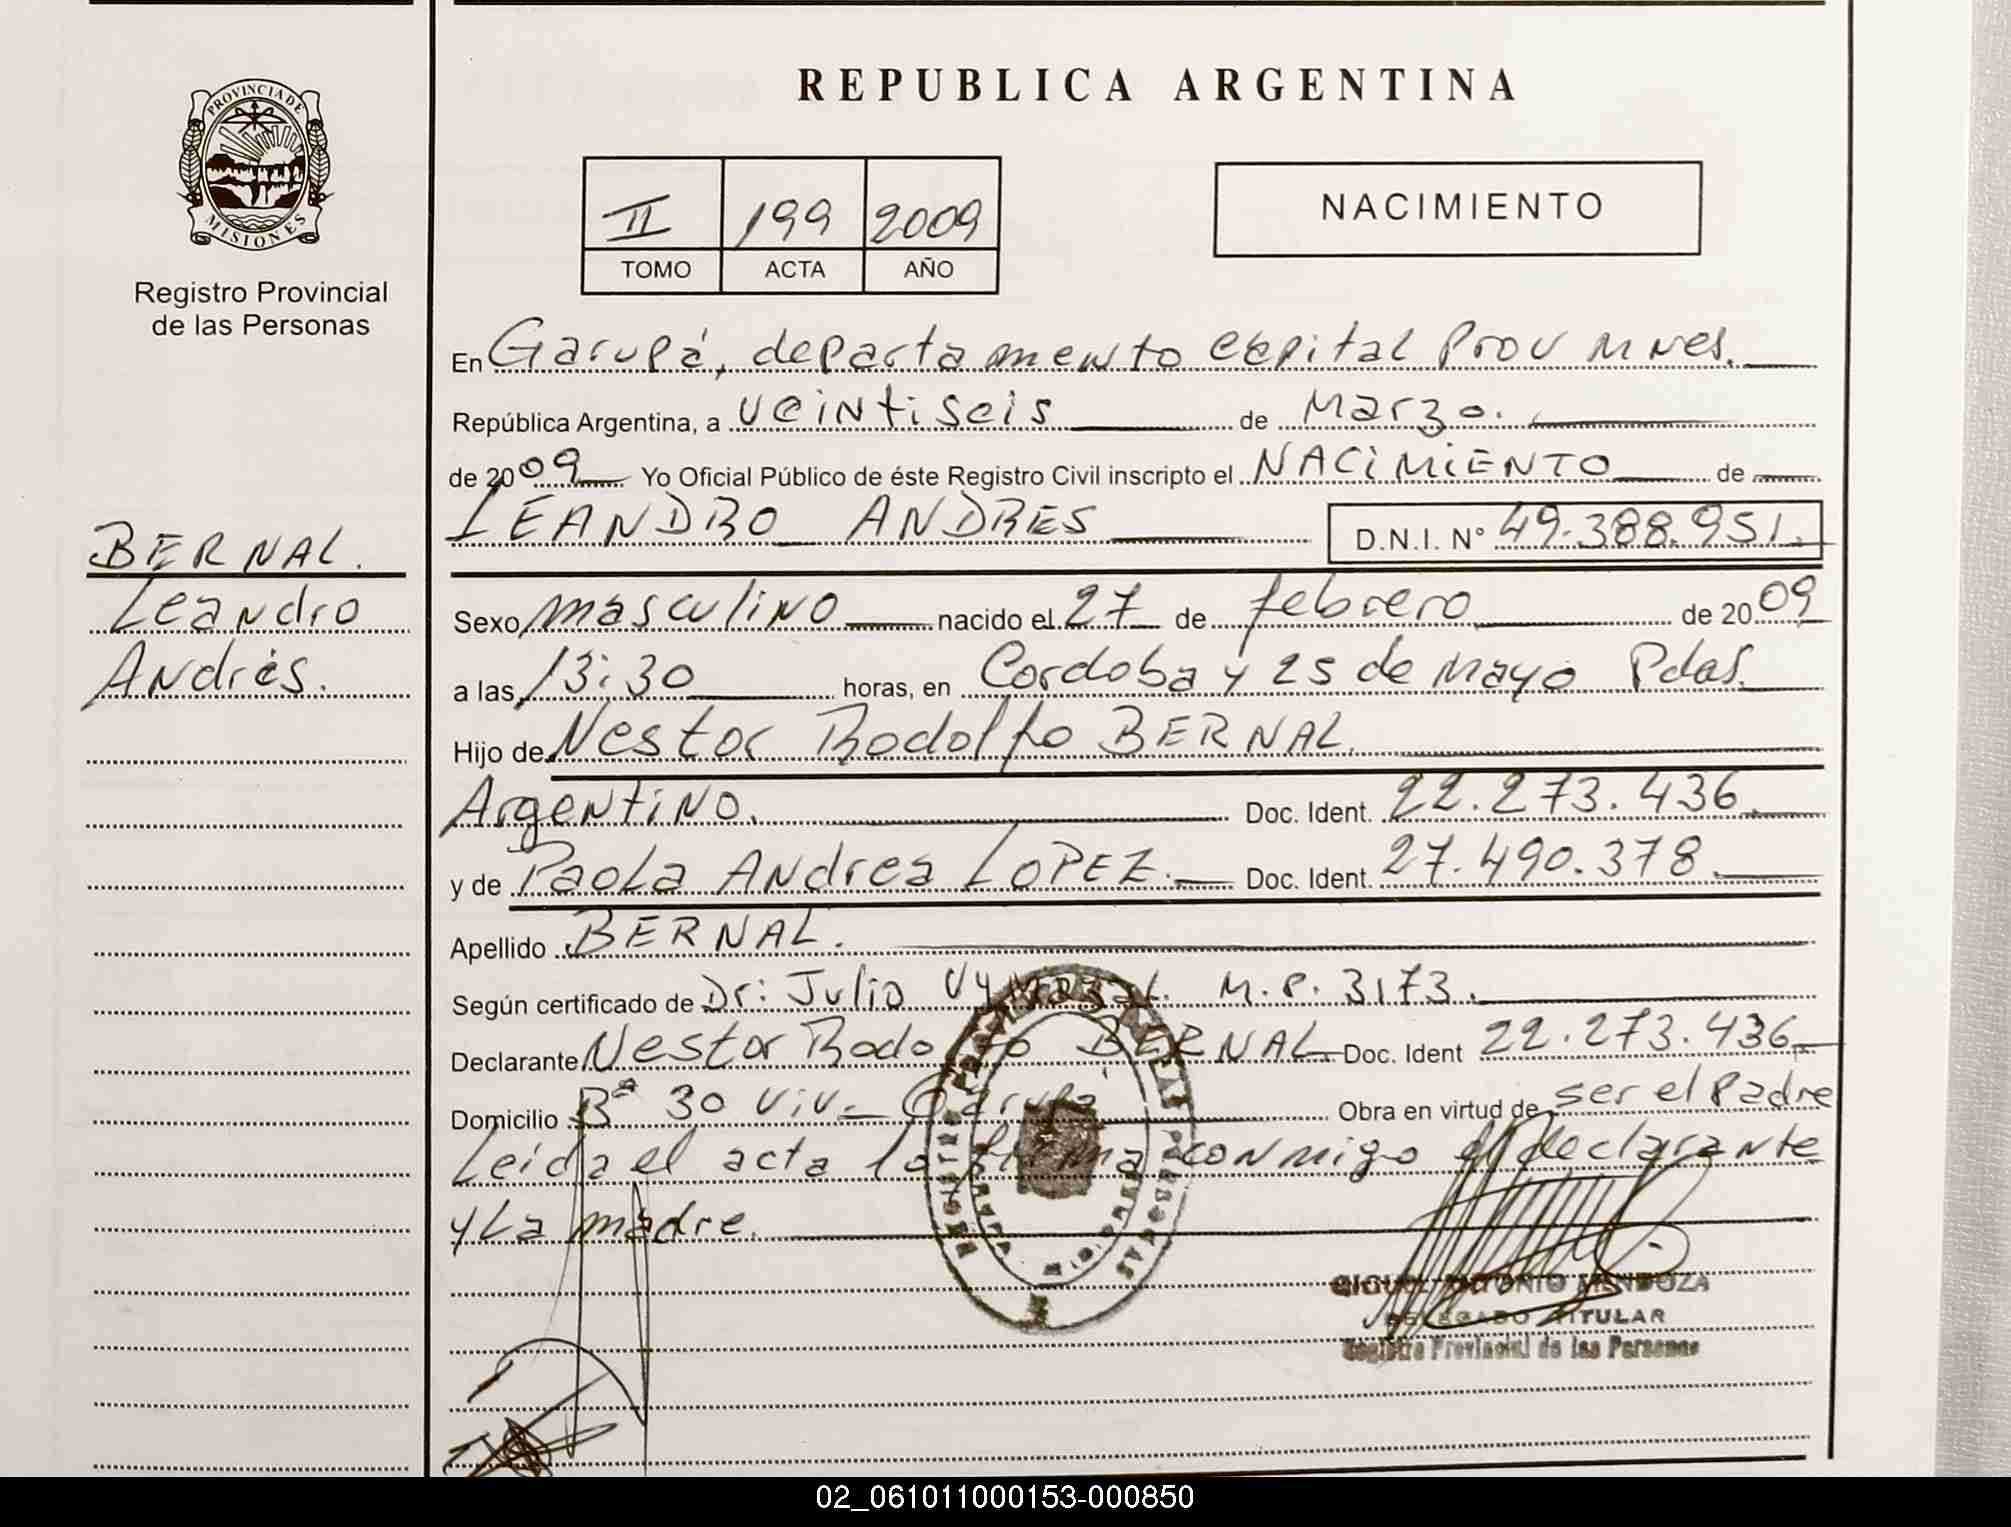 REPUBLICA ARGENTINA
PROVINCIA DE
MISIONES
Registro Provincial
de las Personas
II 199 2009
TOMO ACTA AÑO
NACIMIENTO
En Garupá, departamento capital Prov Mnes.
República Argentina, a veintiseis de Marzo.
de 2009 Yo Oficial Público de éste Registro Civil inscripto el NACIMIENTO de
LEANDRO ANDRES D.N.I. N° 49.388.951.
BERNAL.
Leandro
Andrés.
Sexo masculino nacido el 27 de febrero de 2009
a las 13:30 horas, en Cordoba y 25 de Mayo Pdas.
Hijo de Nestor Rodolfo BERNAL.
Argentino. Doc. Ident. 22.273.436.
y de Paola Andrea LOPEZ. Doc. Ident. 27.490.378.
Apellido BERNAL.
Según certificado de Dr: Julio M.P. 3173.
Declarante Nestor Rodolfo BERNAL Doc. Ident 22.273.436
Domicilio B° 30 viv. Garupá Obra en virtud de ser el padre
Leida el acta la firma conmigo el declarante
y La madre.
MIGUEL ANTONIO MENDOZA
DELEGADO TITULAR
Registro Provincial de las Personas
02_061011000153-000850